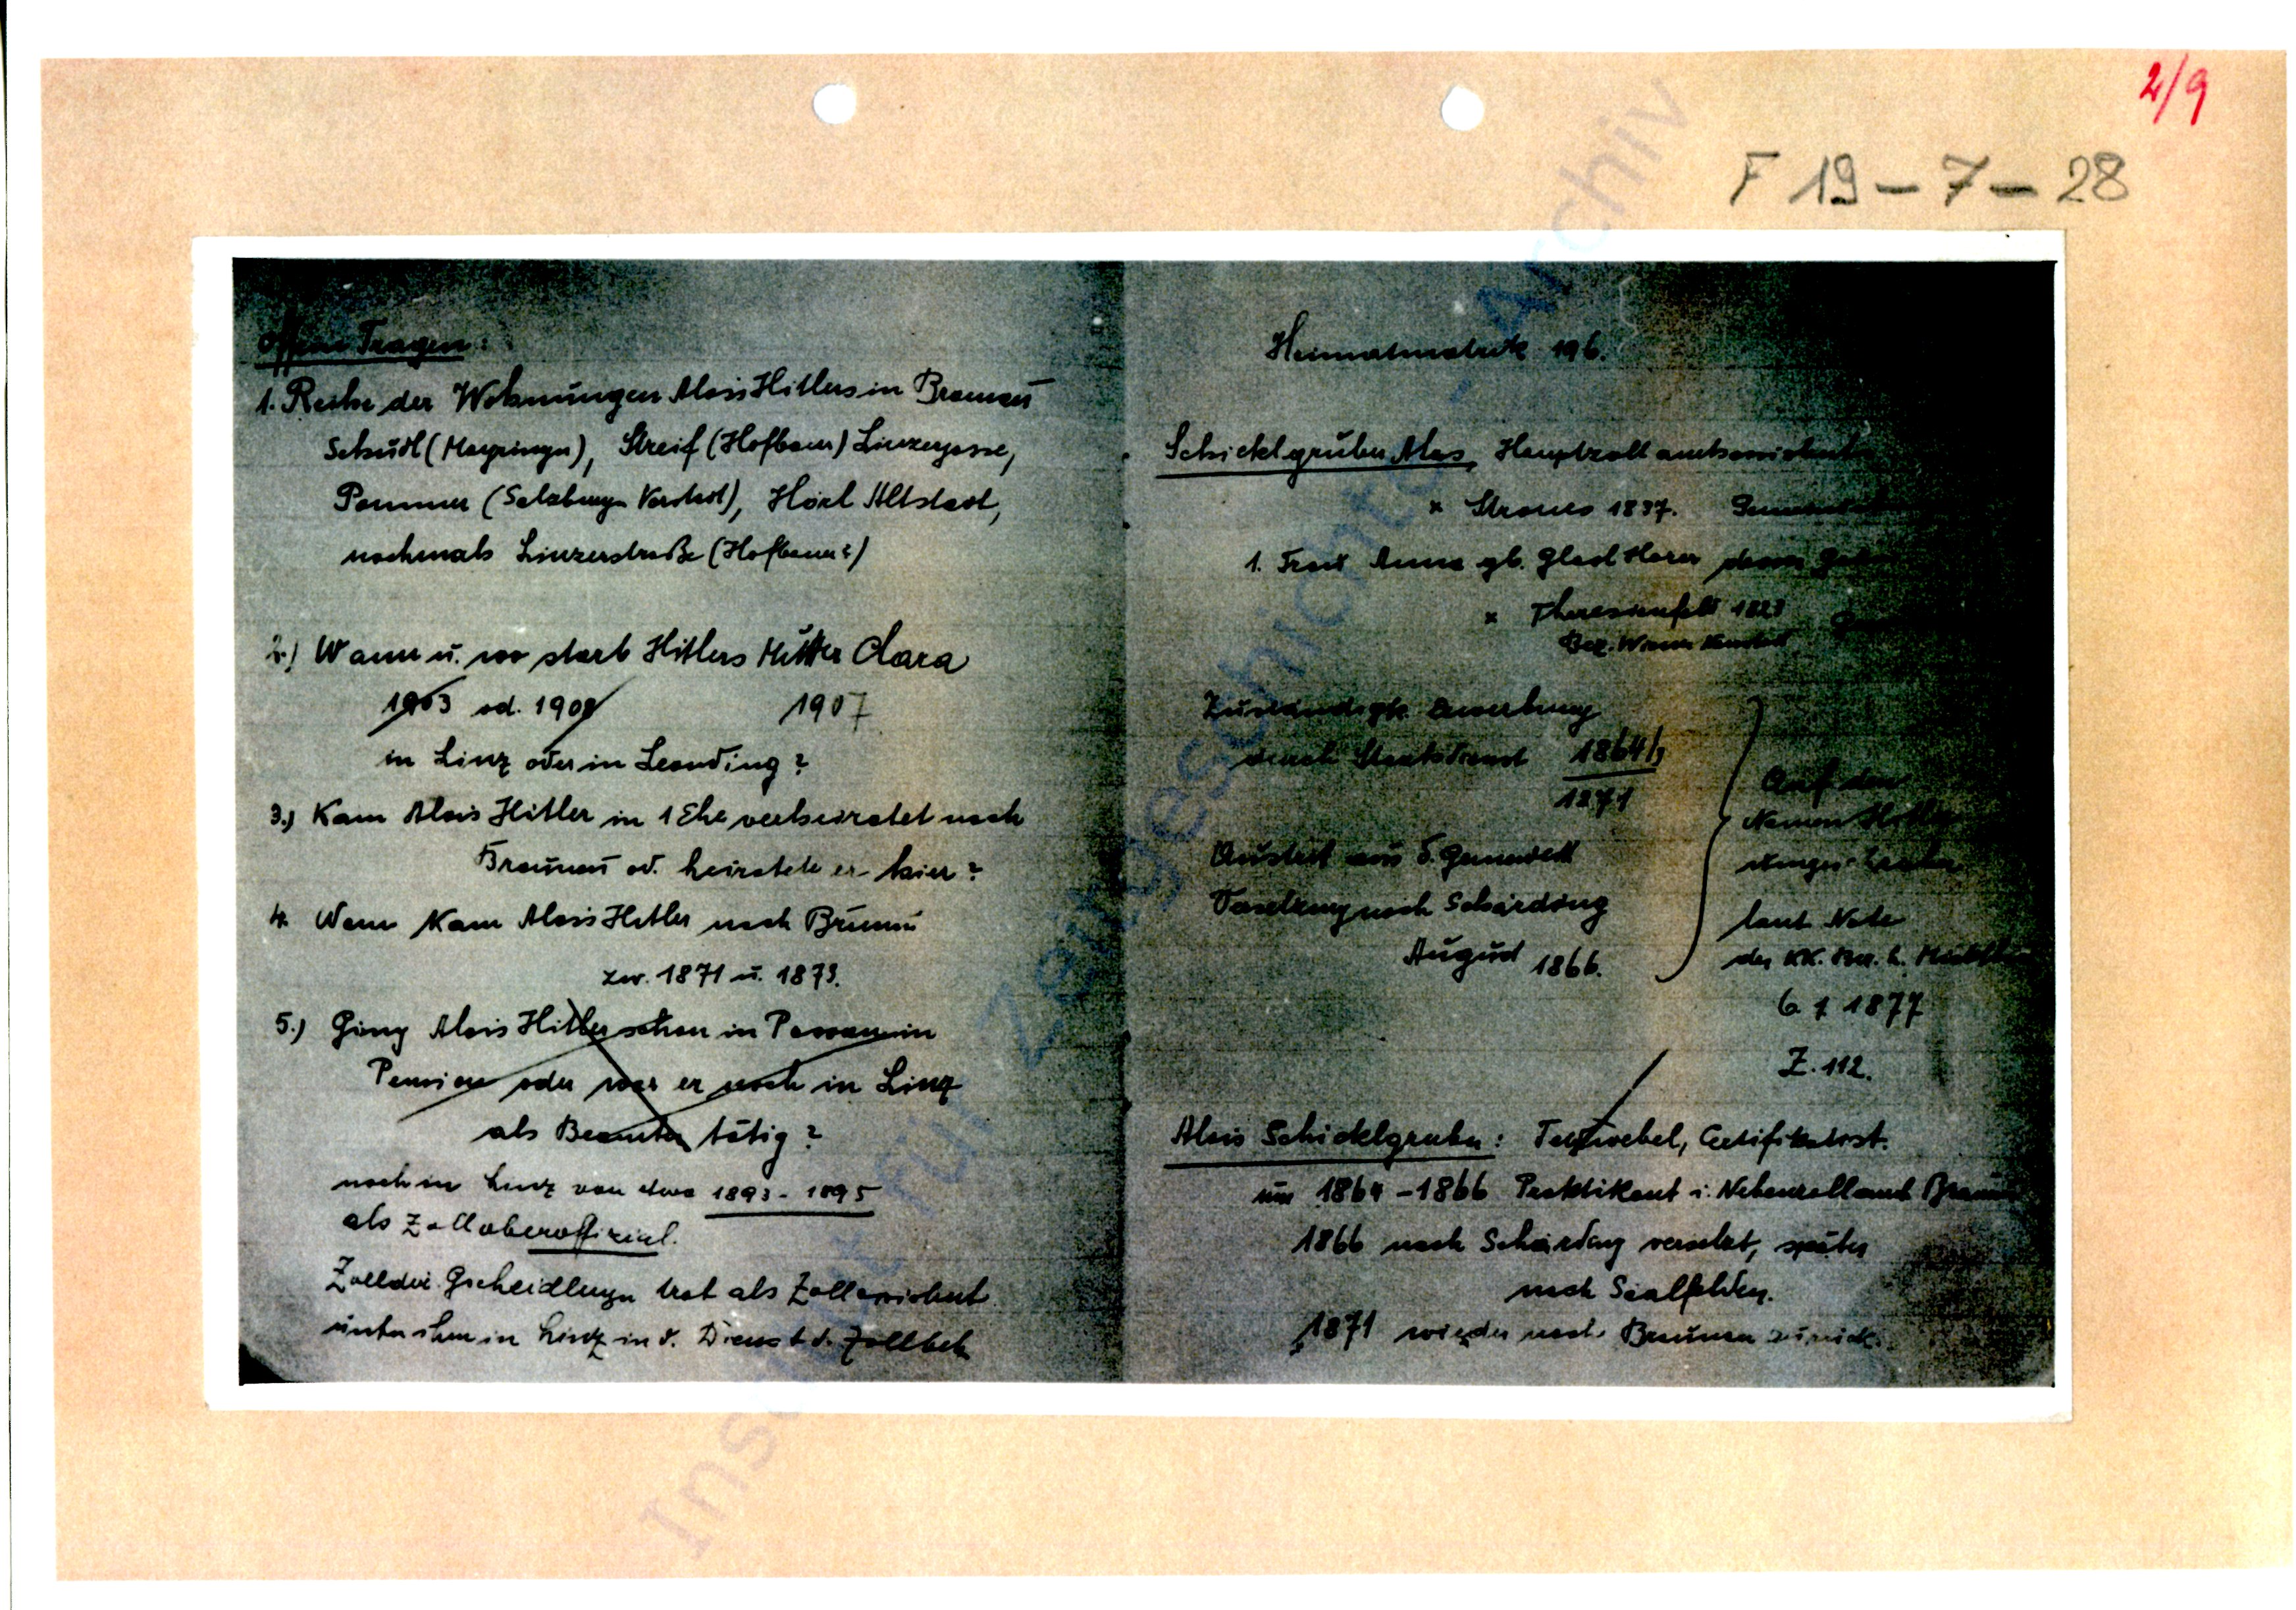 2/9
F 19 – 7 – 28
Offene Fragen:
1. Reihe der Wohnungen Alois Hitlers in Braunau
Schüdl (Mayringer), Streif (Hofbauer) Linzergasse,
Pommer (Salzburger Vorstadt), Hörl Altstadt,
nochmals Linzerstraße (Hofbauer?)
2.) Wann u. wo starb Hitlers Mutter Clara
1903 od. 1908 1907
in Linz oder in Leonding?
3.) Kam Alois Hitler in 1 Ehe verheiratet nach
Braunau od. heiratete er hier?
4. Wann kam Alois Hitler nach
zw. 1871 u. 1873.
5.) Ging Alois Hitler schon in Passau in
Pension oder war er noch in Linz
als Beamter tätig?
noch in Linz von etwa 1893 - 1895
als Zolloberoffizial.
Gscheidlinger trat als Zollassistent
unter ihm in Linz in d. Dienst d.
Heimatmatrik 196.
Schicklgruber Alois, Hauptzollamtsassistent
× Strones 1837.
1. Frau Anna gb.
× Theresienfeld 1823
Bez. Wiener Neustadt
Zuständigk. Erwerbung
durch Staatsdienst
1871
Austritt aus d.
Versetzung nach Schärding
August 1866.
Auf den
Namen
laut Note
der KK. Bez. h.
6. 1 1877
Z. 112.
Alois Schicklgruber:
um 1864 - 1866 Praktikant i. Nebenzollamt
1866 nach Schärding versetzt, später
nach Saalfelden.
1871 wieder nach Braunau zurück.
Institut für Zeitgeschichte - Archiv